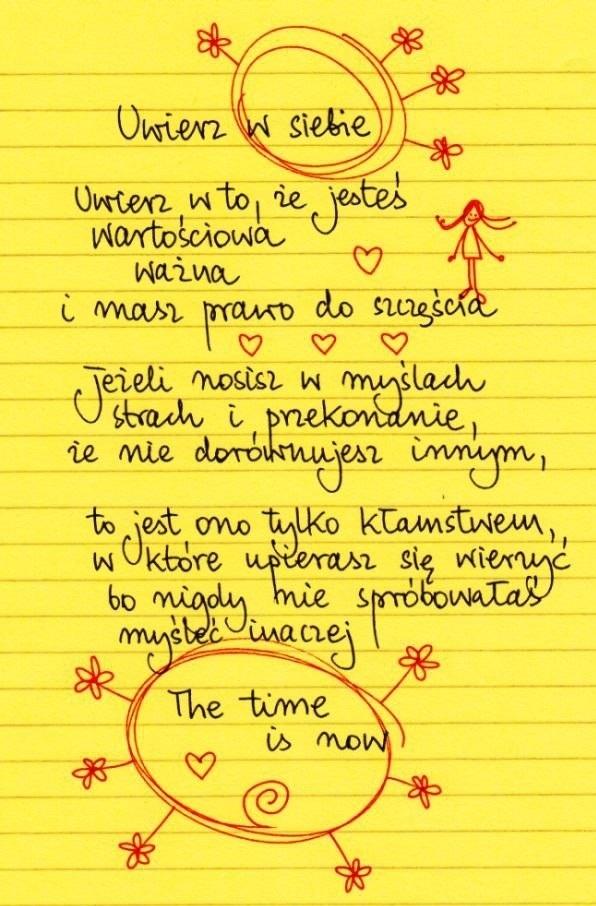 Uwierz w siebie
Uwierz w to, że jesteś
wartościowa
ważna
i masz prawo do szczęścia
Jeżeli nosisz w myślach
strach i przekonanie,
że nie dorównujesz innym,
to jest ono tylko kłamstwem,
w które upierasz się wierzyć
bo nigdy nie spróbowałaś
myśleć inaczej
The time
is now